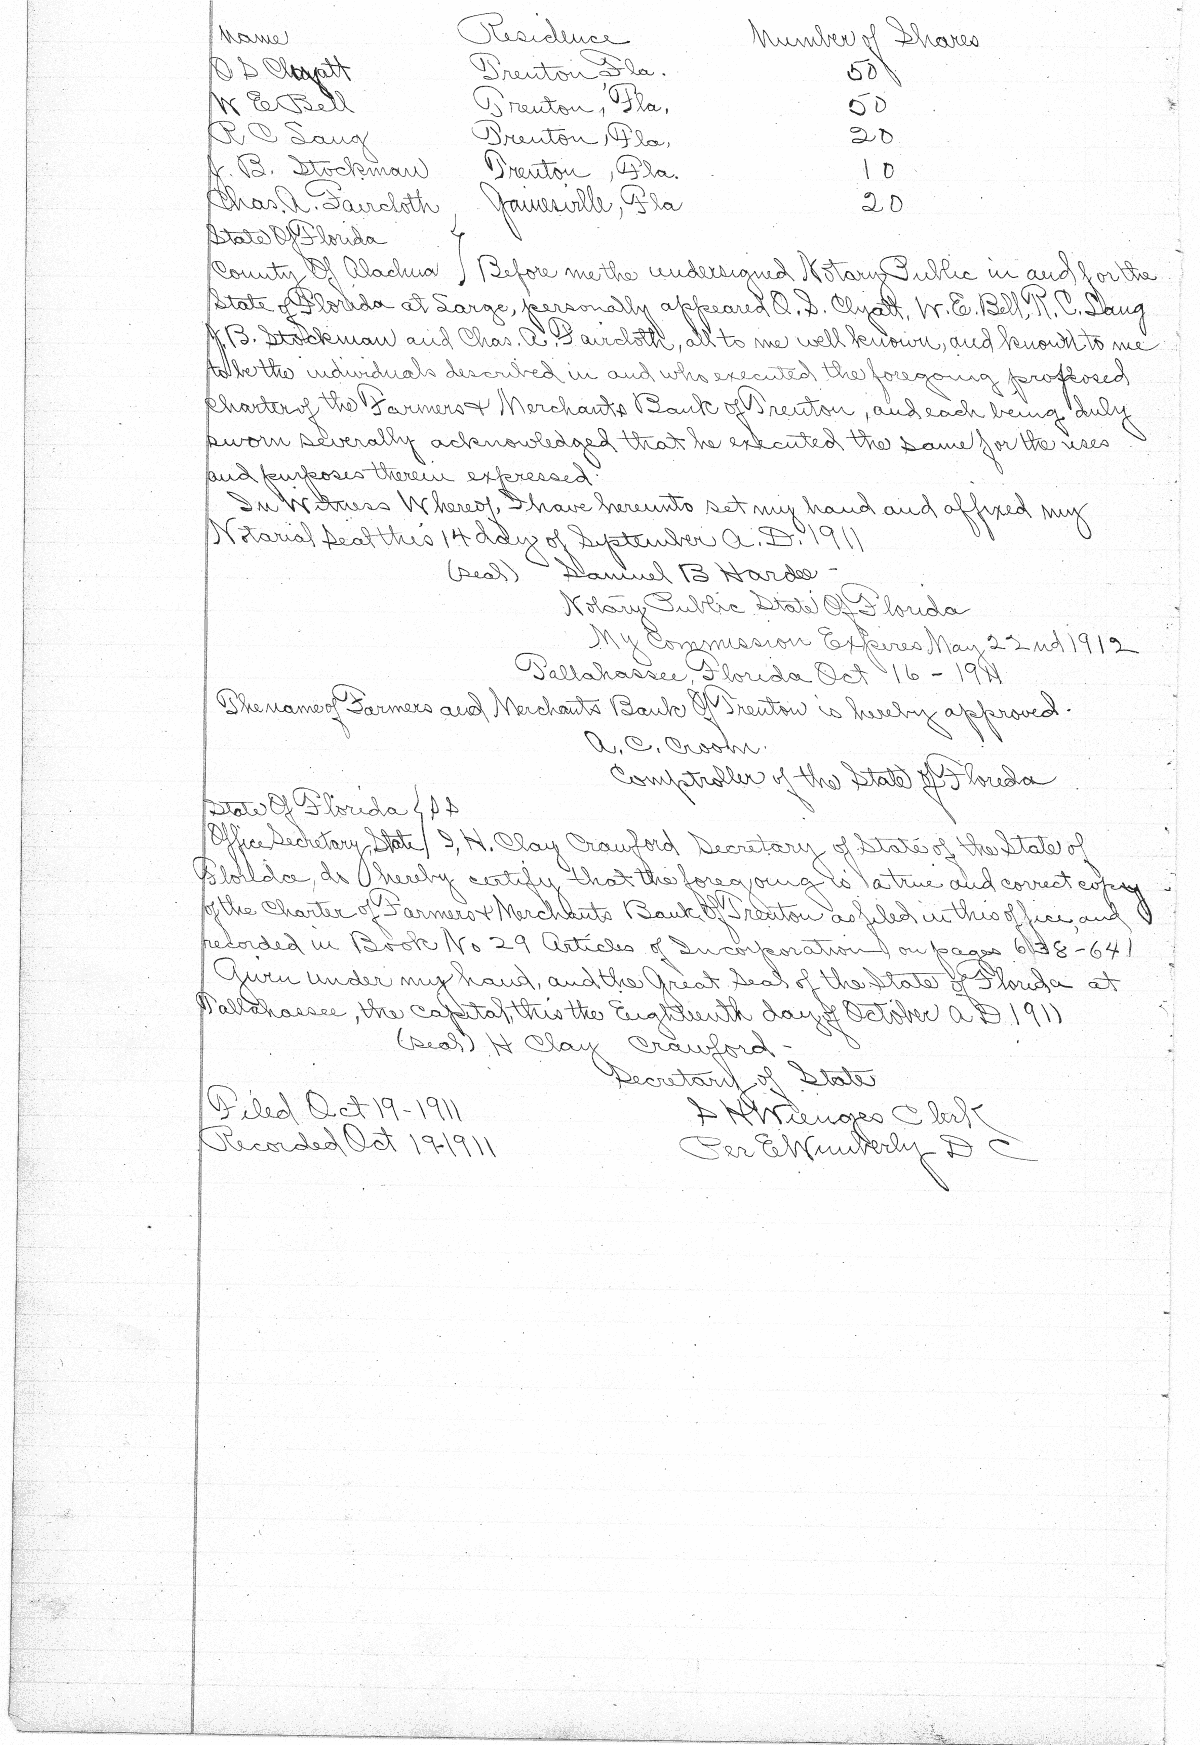 Name Residence Number of Shares
O S Clyatt Trenton Fla. 50
W E Bell Trenton, Fla, 50
R C Lang Trenton, Fla, 20
J. B. Stockman Trenton, Fla. 10
Chas. A. Faircloth, Gainesville, Fla 20
State Of Florida
County Of Alachua } Before me the undersigned Notary Public in and for the
State of Florida at Large, personally appeared O. S. Clyatt, W. E. Bell, R. C. Lang
J. B. Stockman and Chas. A. Faircloth, all to me well known, and known to me
to be the individuals described in and who executed the foregoing proposed
charter of the Farmers & Merchants Bank of Trenton, and each being duly
sworn severally acknowledged that he executed the same for the uses
and purposes therein expressed.
In Witness Whereof, I have hereunto set my hand and affixed my
Notarial Seal this 14 day of September A. D. 1911
(Seal) Samuel B Hardee -
Notary Public State Of Florida
My Commission Expires May 22nd 1912
Tallahassee, Florida Oct 16 - 1911
The name of Farmers and Merchants Bank Of Trenton is hereby approved.
A. C. Croom.
Comptroller of the State of Florida
State Of Florida } SS
Office Secretary State } I, H. Clay Crawford Secretary of State of the State of
Florida, do hereby certify that the foregoing is a true and correct copy
of the Charter of Farmers & Merchants Bank Of Trenton as filed in this office, and
recorded in Book No 29 Articles of Incorporation, on pages 638-641
Given under my hand, and the Great Seal of the State of Florida at
Tallahassee, the capital, this the Eighteenth day of October A D 1911
(Seal) H Clay Crawford -
Secretary of State
Filed Oct 19-1911 S H Wienges Clerk
Recorded Oct 19-1911 Per E Wimberly D C